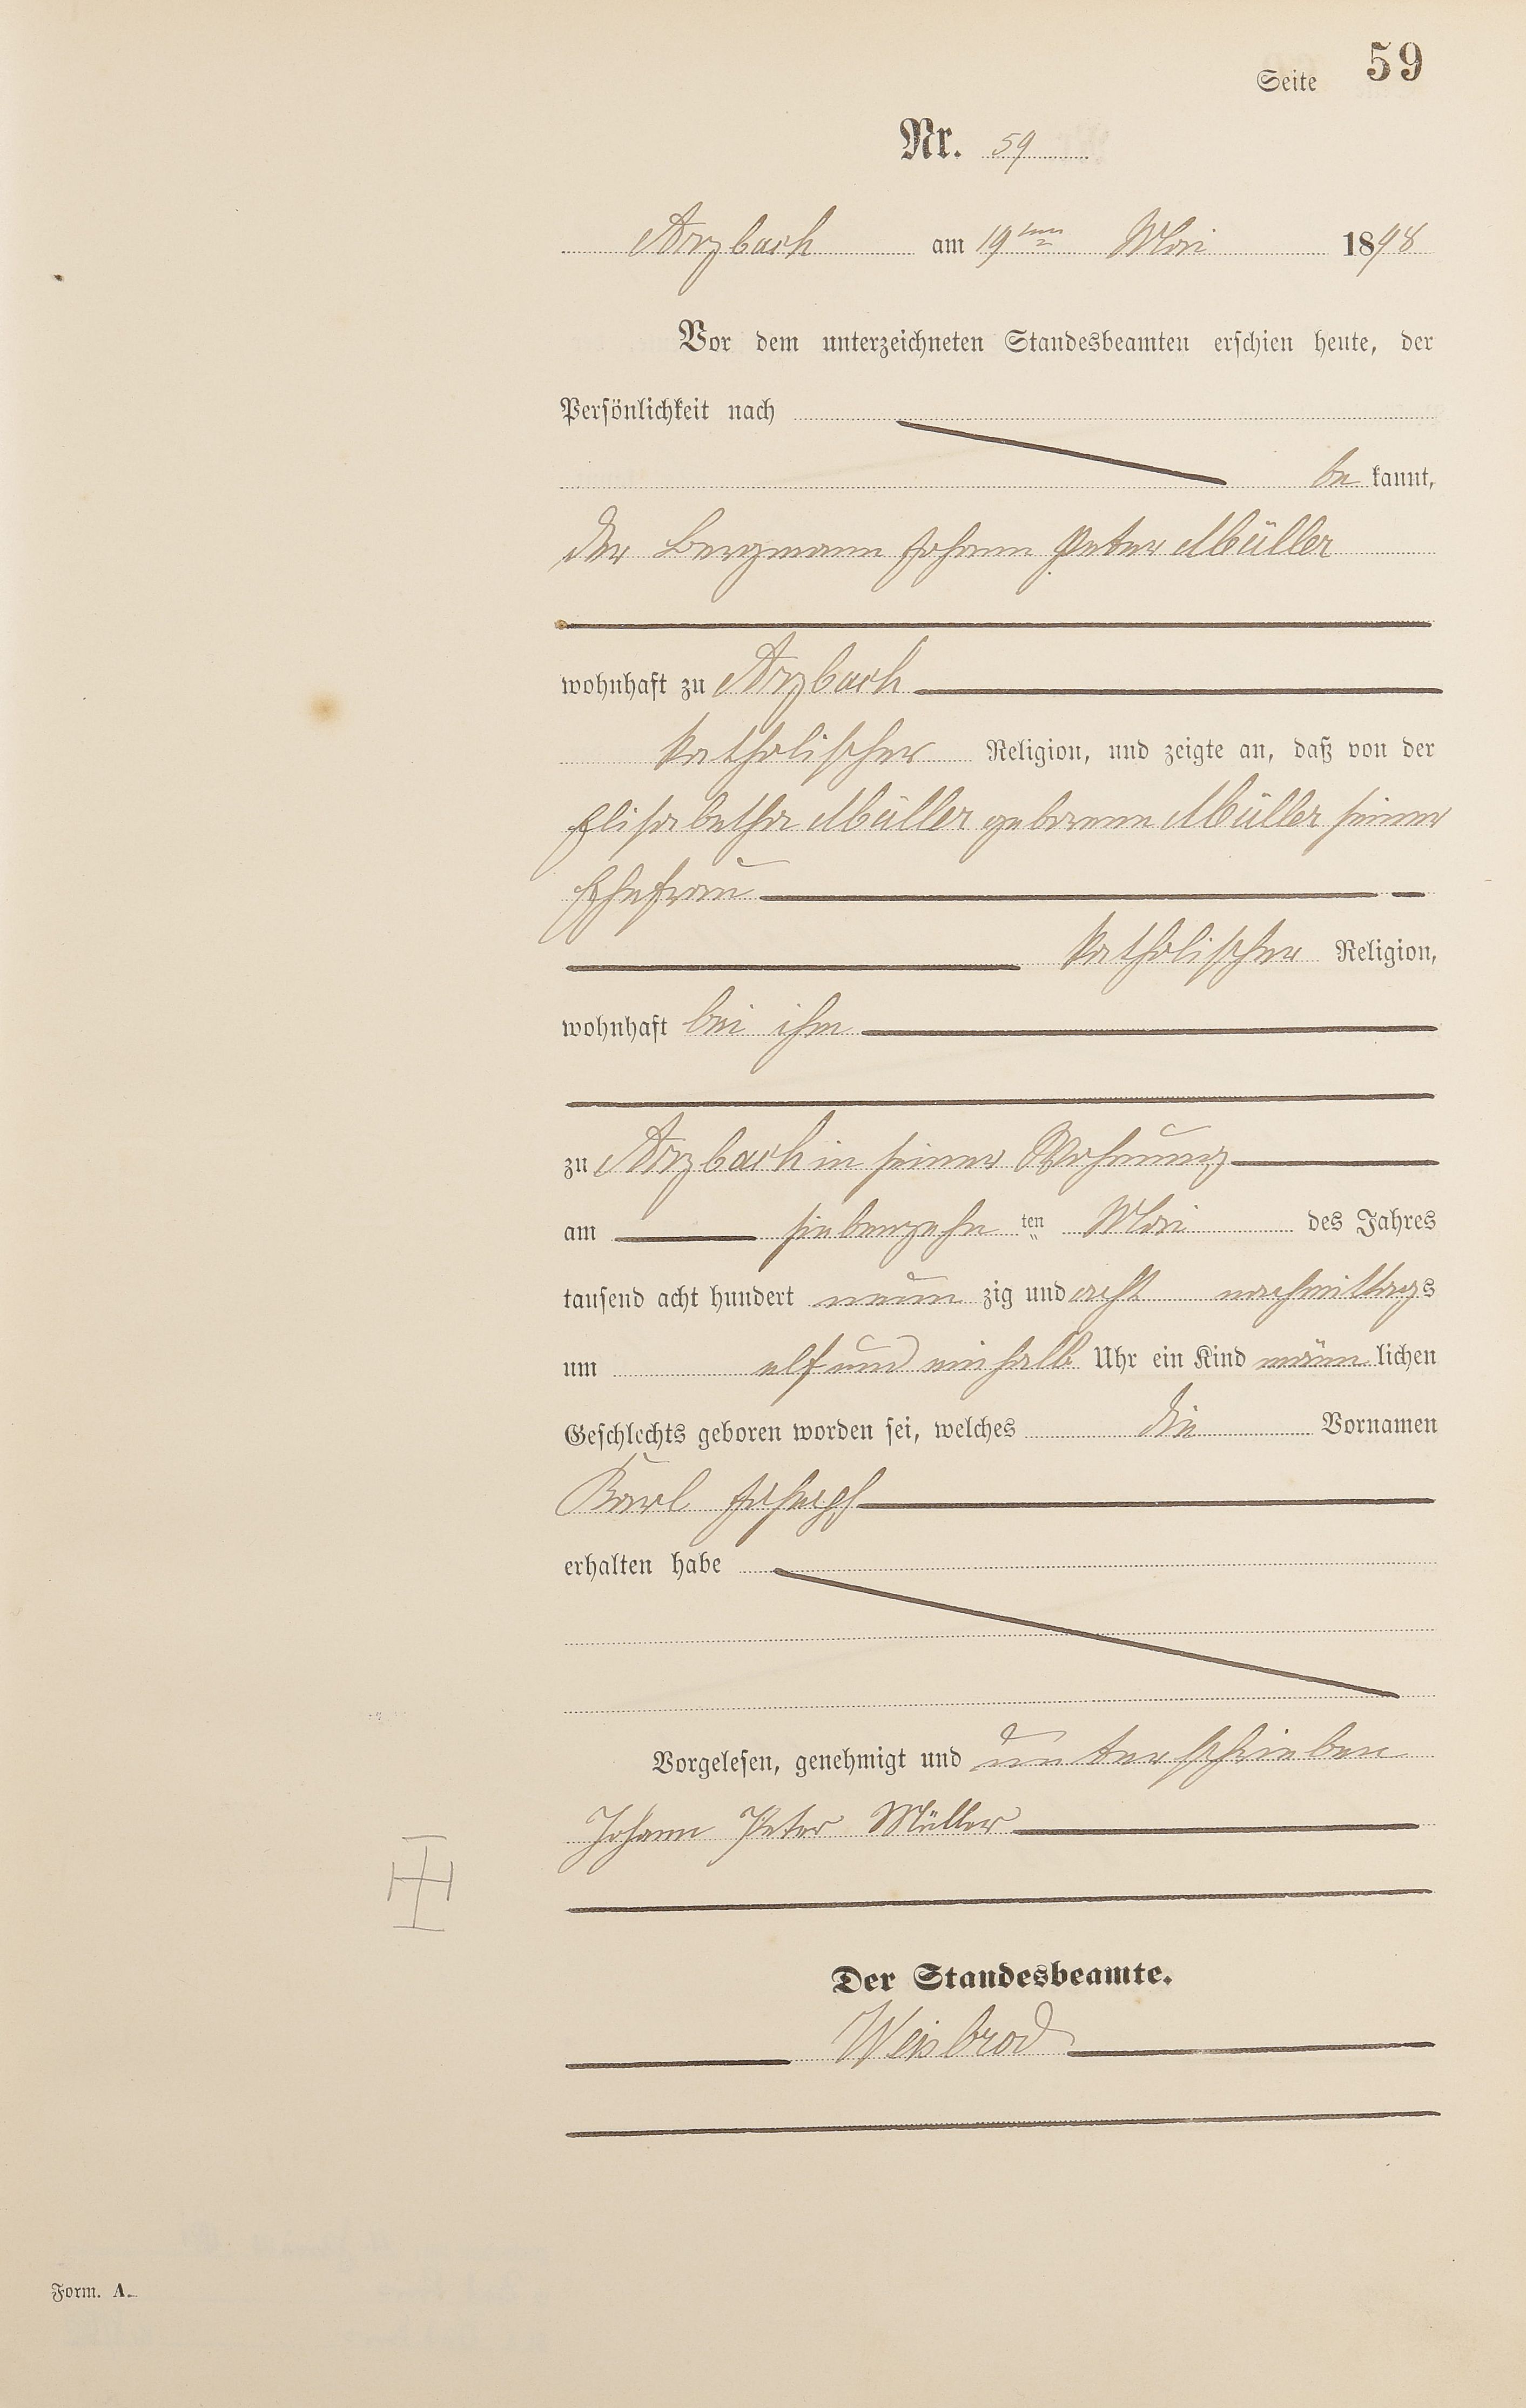 Seite 59
Nr. 59
Arzbach am 19ten Mai 1898
Vor dem unterzeichneten Standesbeamten erschien heute, der
Persönlichkeit nach
be kannt,
der Bergmann Johann Peter Müller
wohnhaft zu Arzbach
katholischer Religion, und zeigte an, daß von der
Elisabetha Müller geborene Müller seiner
Ehefrau
katholischer Religion,
wohnhaft bei ihm
zu Arzbach in seiner Wohnung
am siebenzehn ten Mai des Jahres
tausend acht hundert neun zig und acht nachmittags
um elf und einhalb Uhr ein Kind männ lichen
Geschlechts geboren worden sei, welches die Vornamen
Karl Joseph
erhalten habe
Vorgelesen, genehmigt und unterschrieben
Johann Peter Müller
Der Standesbeamte.
Weisbrod
Form. A.